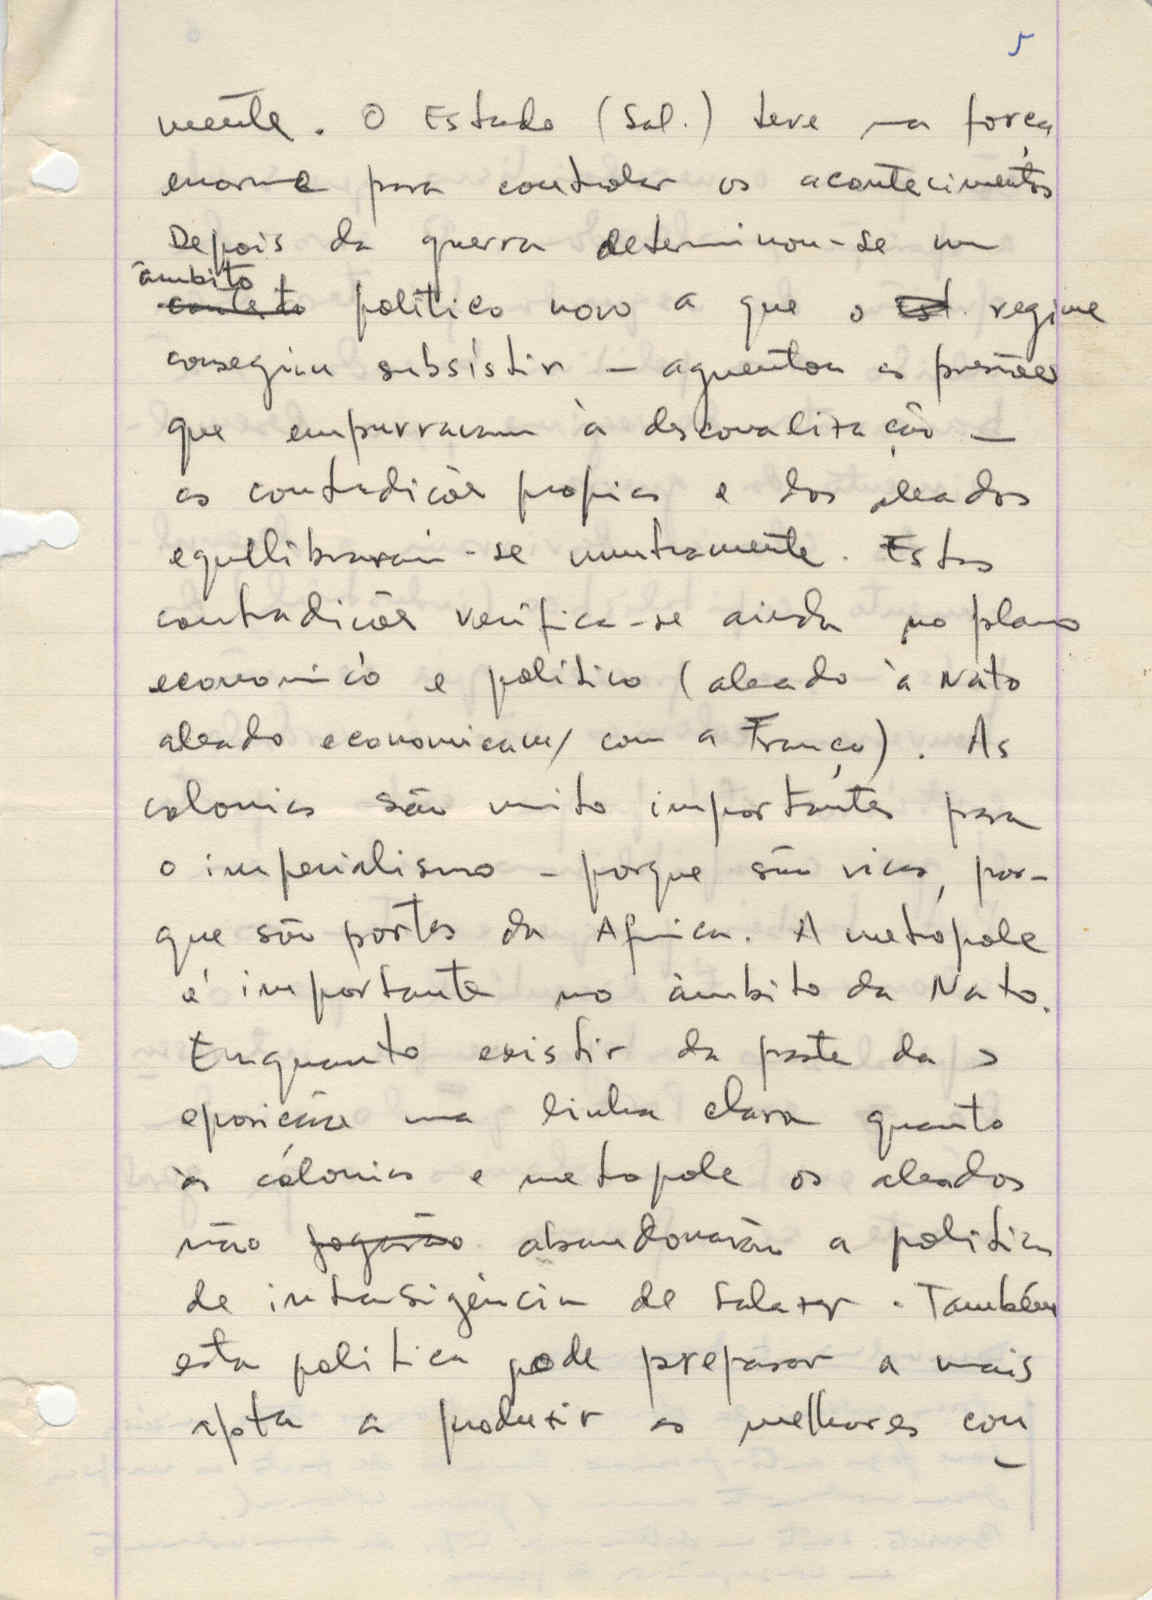 5
mente. O Estado (Sal.) teve uma força
enorme para controlar os acontecimentos
Depois da guerra determinou-se um
âmbito
contexto político novo a que o Est. regime
conseguiu subsistir – aguentou as pressões
que empurravam à descolonização –
as contradições próprias e dos aleados
equilibraram-se mutuamente. Estas
contradições verifica-se ainda no plano
económico e político (aleado à Nato
aleado economicam/ com a França). As
colonias são muito importantes para
o imperialismo – porque são ricas, por-
que são portas da Africa. A metrópole
é importante no âmbito da Nato.
Enquanto existir da parte da
oposição uma linha clara quanto
às cólonias e metropole os aleados
não jogarão abandonarão a politica
de intransigência de Salazar. Também
esta politica pode preparar a mais
apta a produzir as melhores con